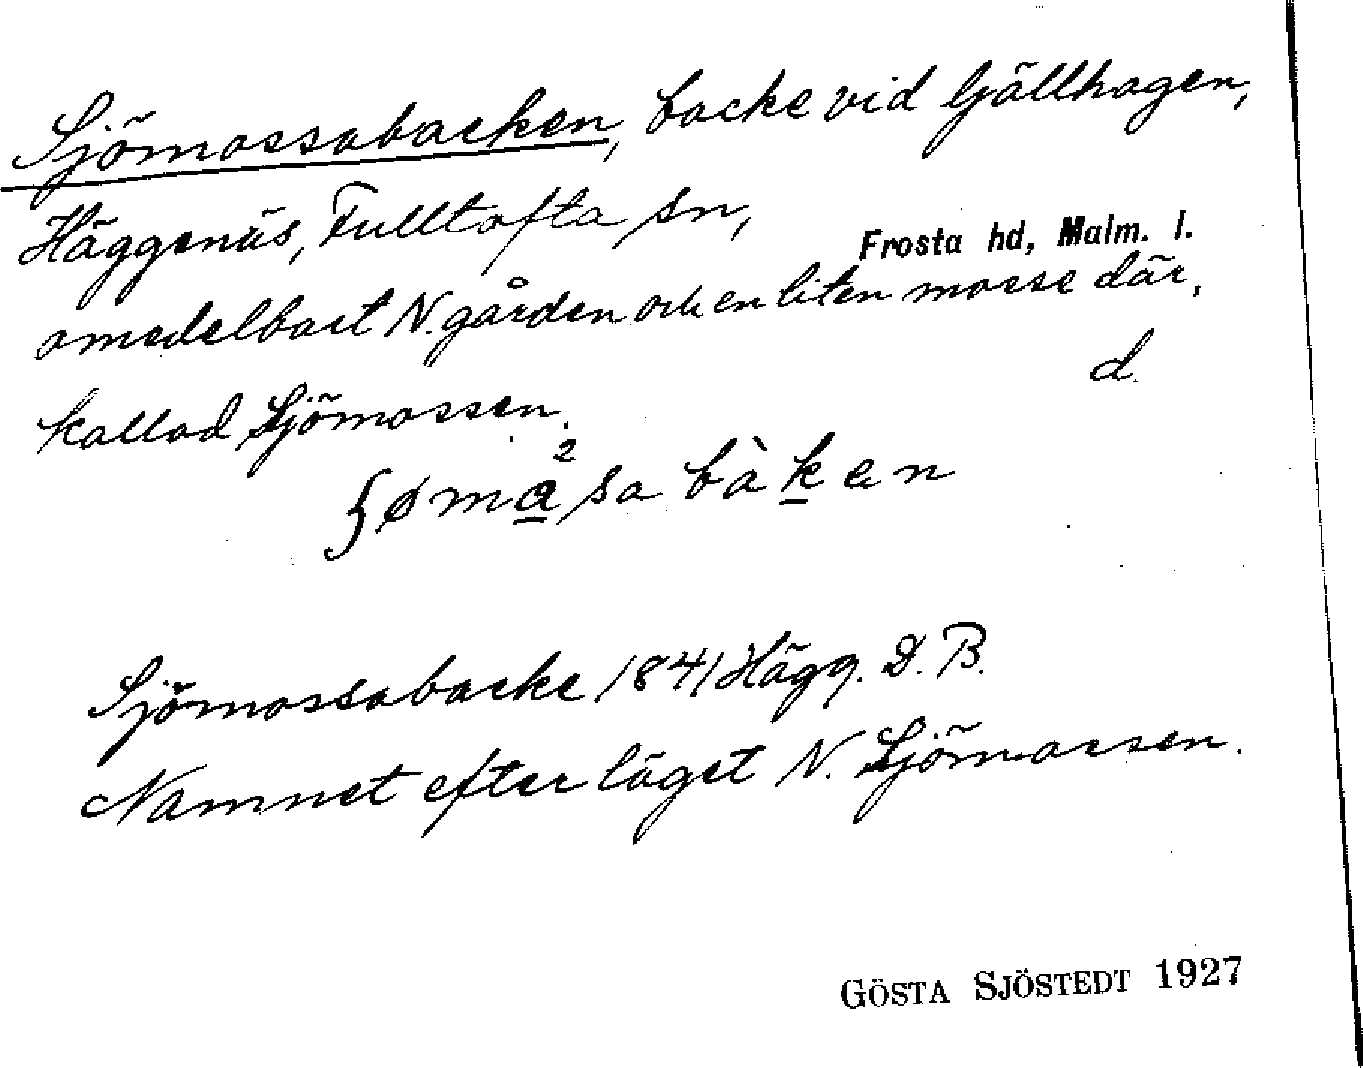 Sjömossabacken, backe vid Gjällhagen,
Häggenäs, Fulltofta sn,
Frosta hd, Malm. l.
omedelbart N. gården och en liten mosse där,
d.
kallad Sjömossen.
Sjömossabacke 1841 Hägg. D. B.
Namnet efter läget N. Sjömossen.
GÖSTA SJÖSTEDT 1927